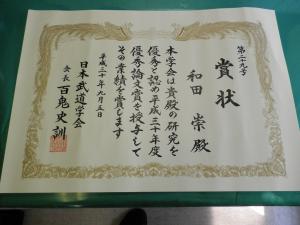 第二十九号
賞状
和田 崇 殿
本学会は貴殿の研究を
優秀と認め平成三十年度
優秀論文賞を授与して
その業績を賞します
平成三十年九月五日
日本武道学会
会長 百鬼史訓